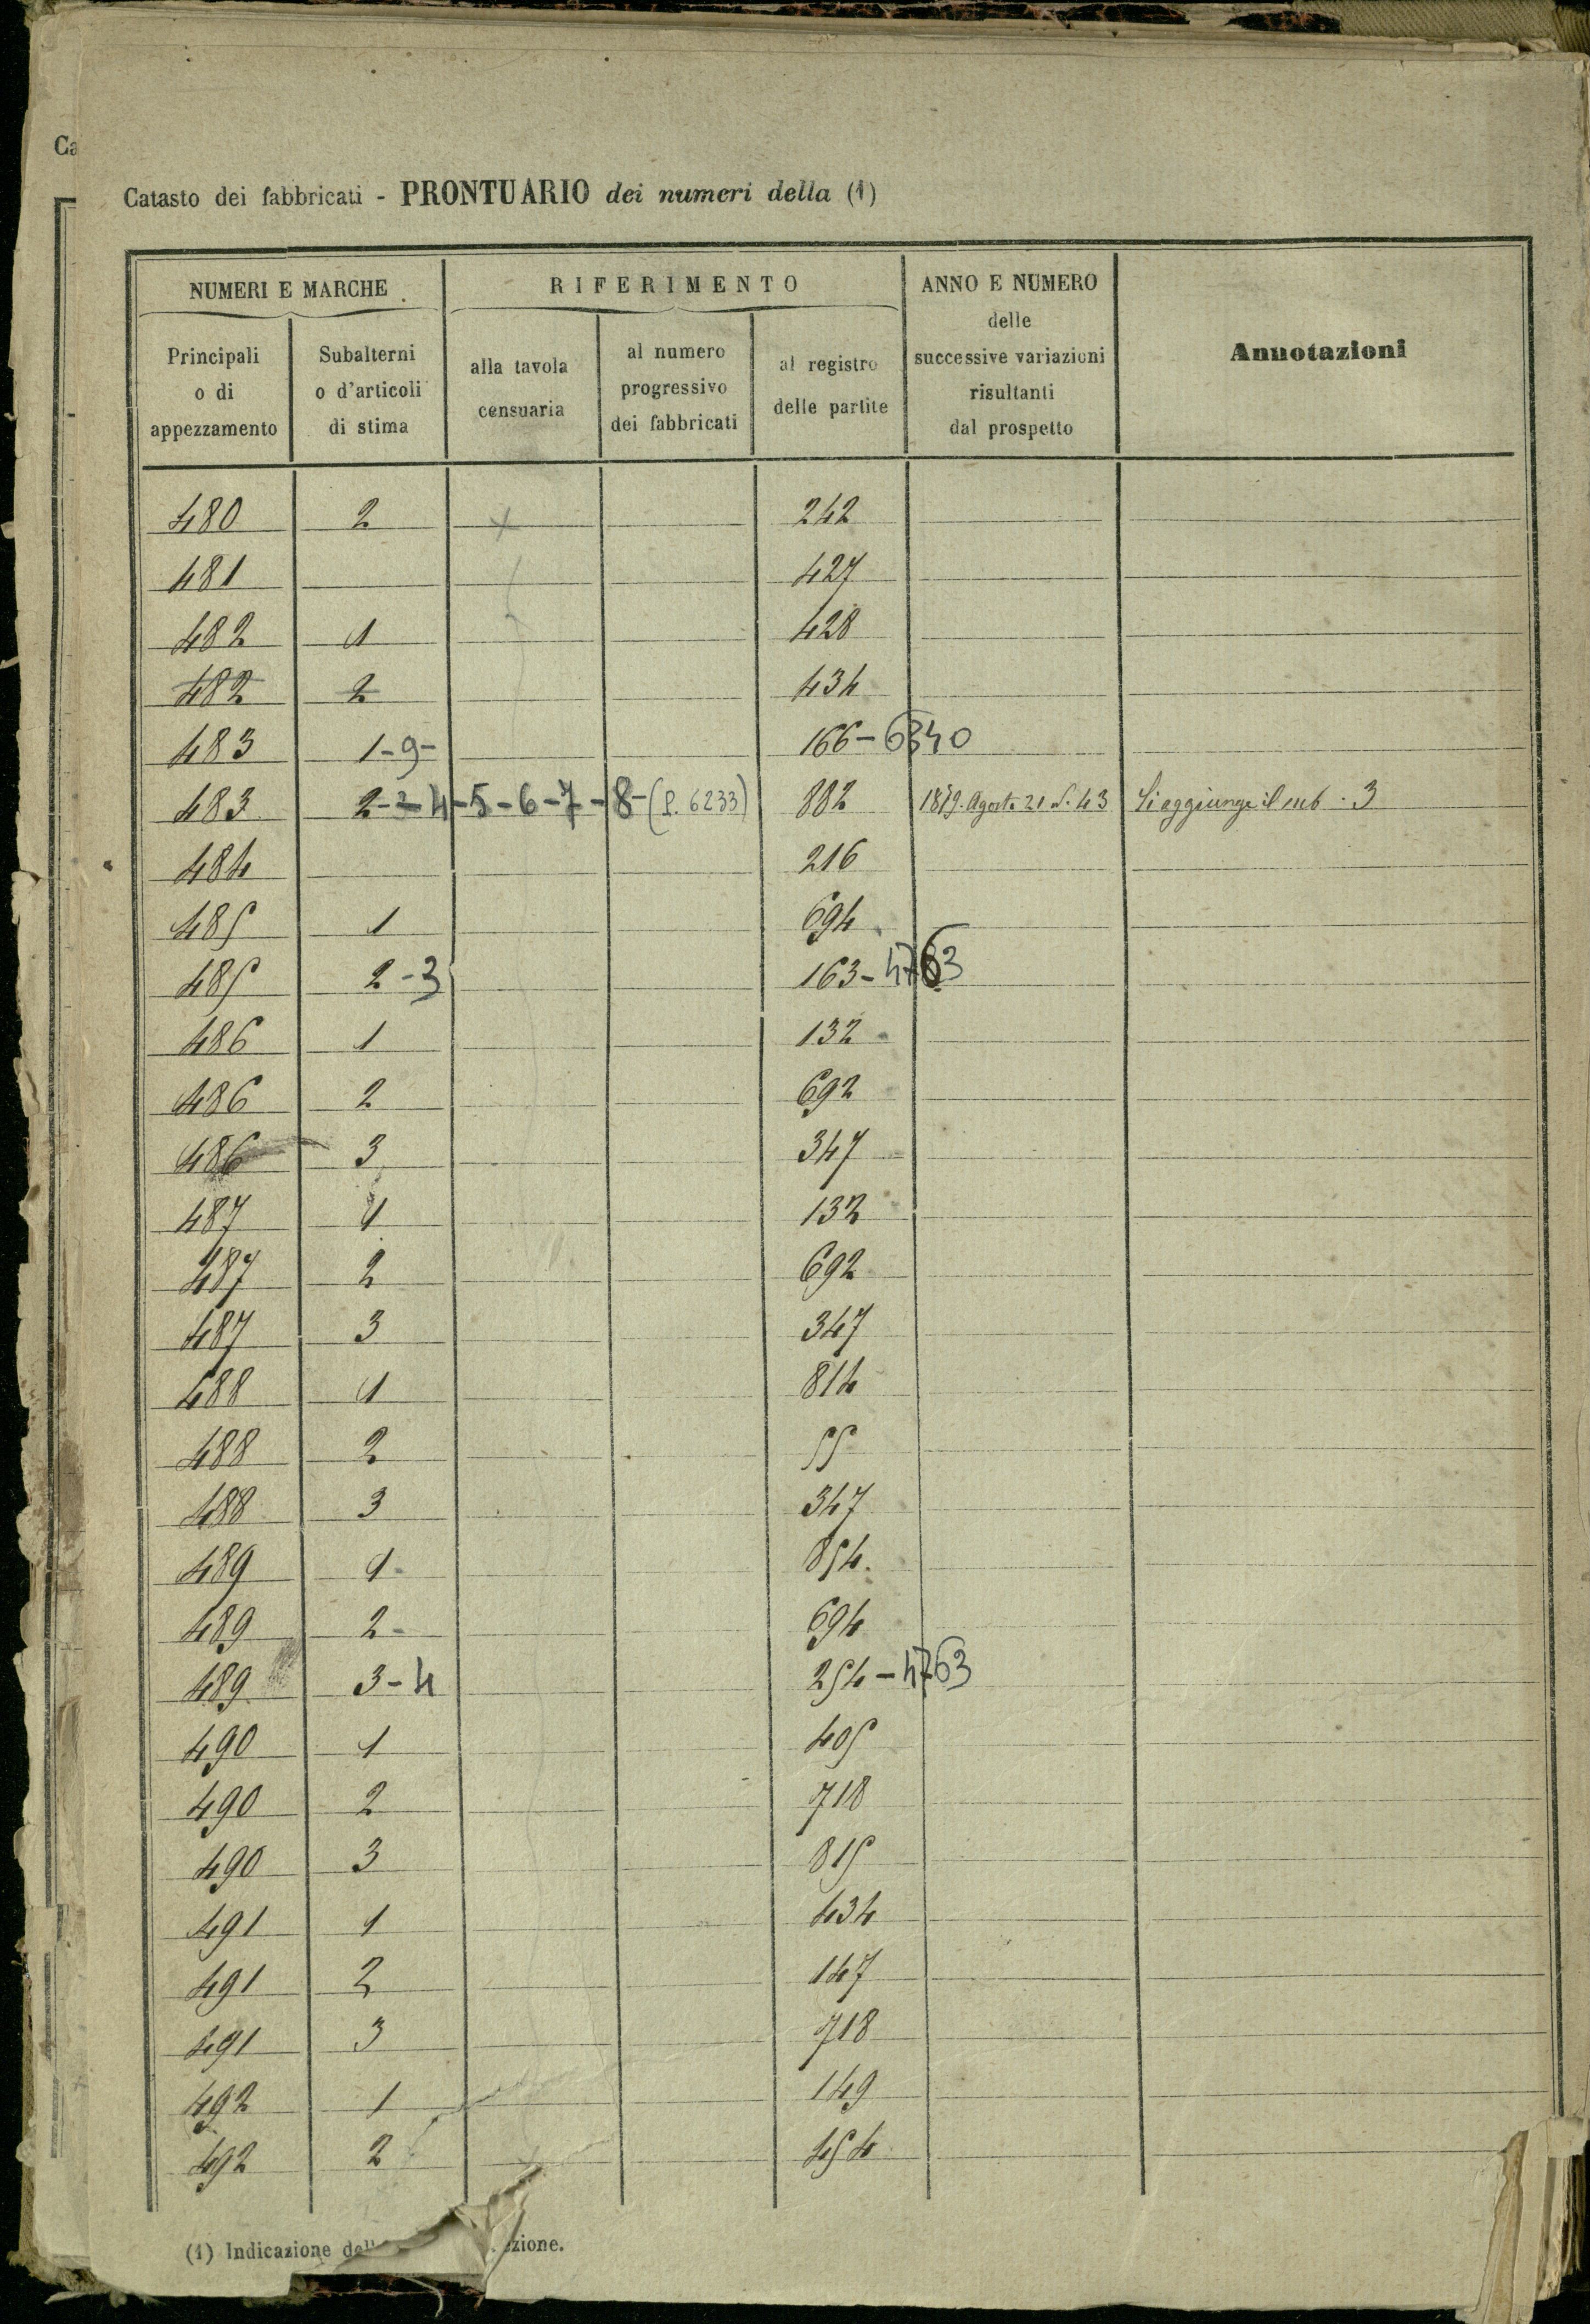 Ca
Catasto dei fabbricati - PRONTUARIO dei numeri della (1)
NUMERI E MARCHE
RIFERIMENTO
ANNO E NUMERO
delle
successive variazioni
risultanti
dal prospetto
Annotazioni
Principali
o di
appezzamento
Subalterni
o d'articoli
di stima
alla tavola
censuaria
al numero
progressivo
dei fabbricati
al registro
delle partite
480 2 242
481 427
482 1 428
482 2 434
483 1-9- 166-6340
483 2-3-4-5-6-7-8-(P. 6233) 882 1879. Agosto 21 N. 43 Si aggiunge il sub. 3
484 216
485 1 694
485 2-3 163-4763
486 1 132
486 2 692
486 3 347
487 1 132
487 2 692
487 3 347
488 1 814
488 2 55
488 3 347
489 1 854.
489 2 694
489 3-4 254-4763
490 1 405
490 2 718
490 3 815
491 1 434
491 2 147
491 3 718
492 1 149
492 2 454
(1) Indicazione zione.